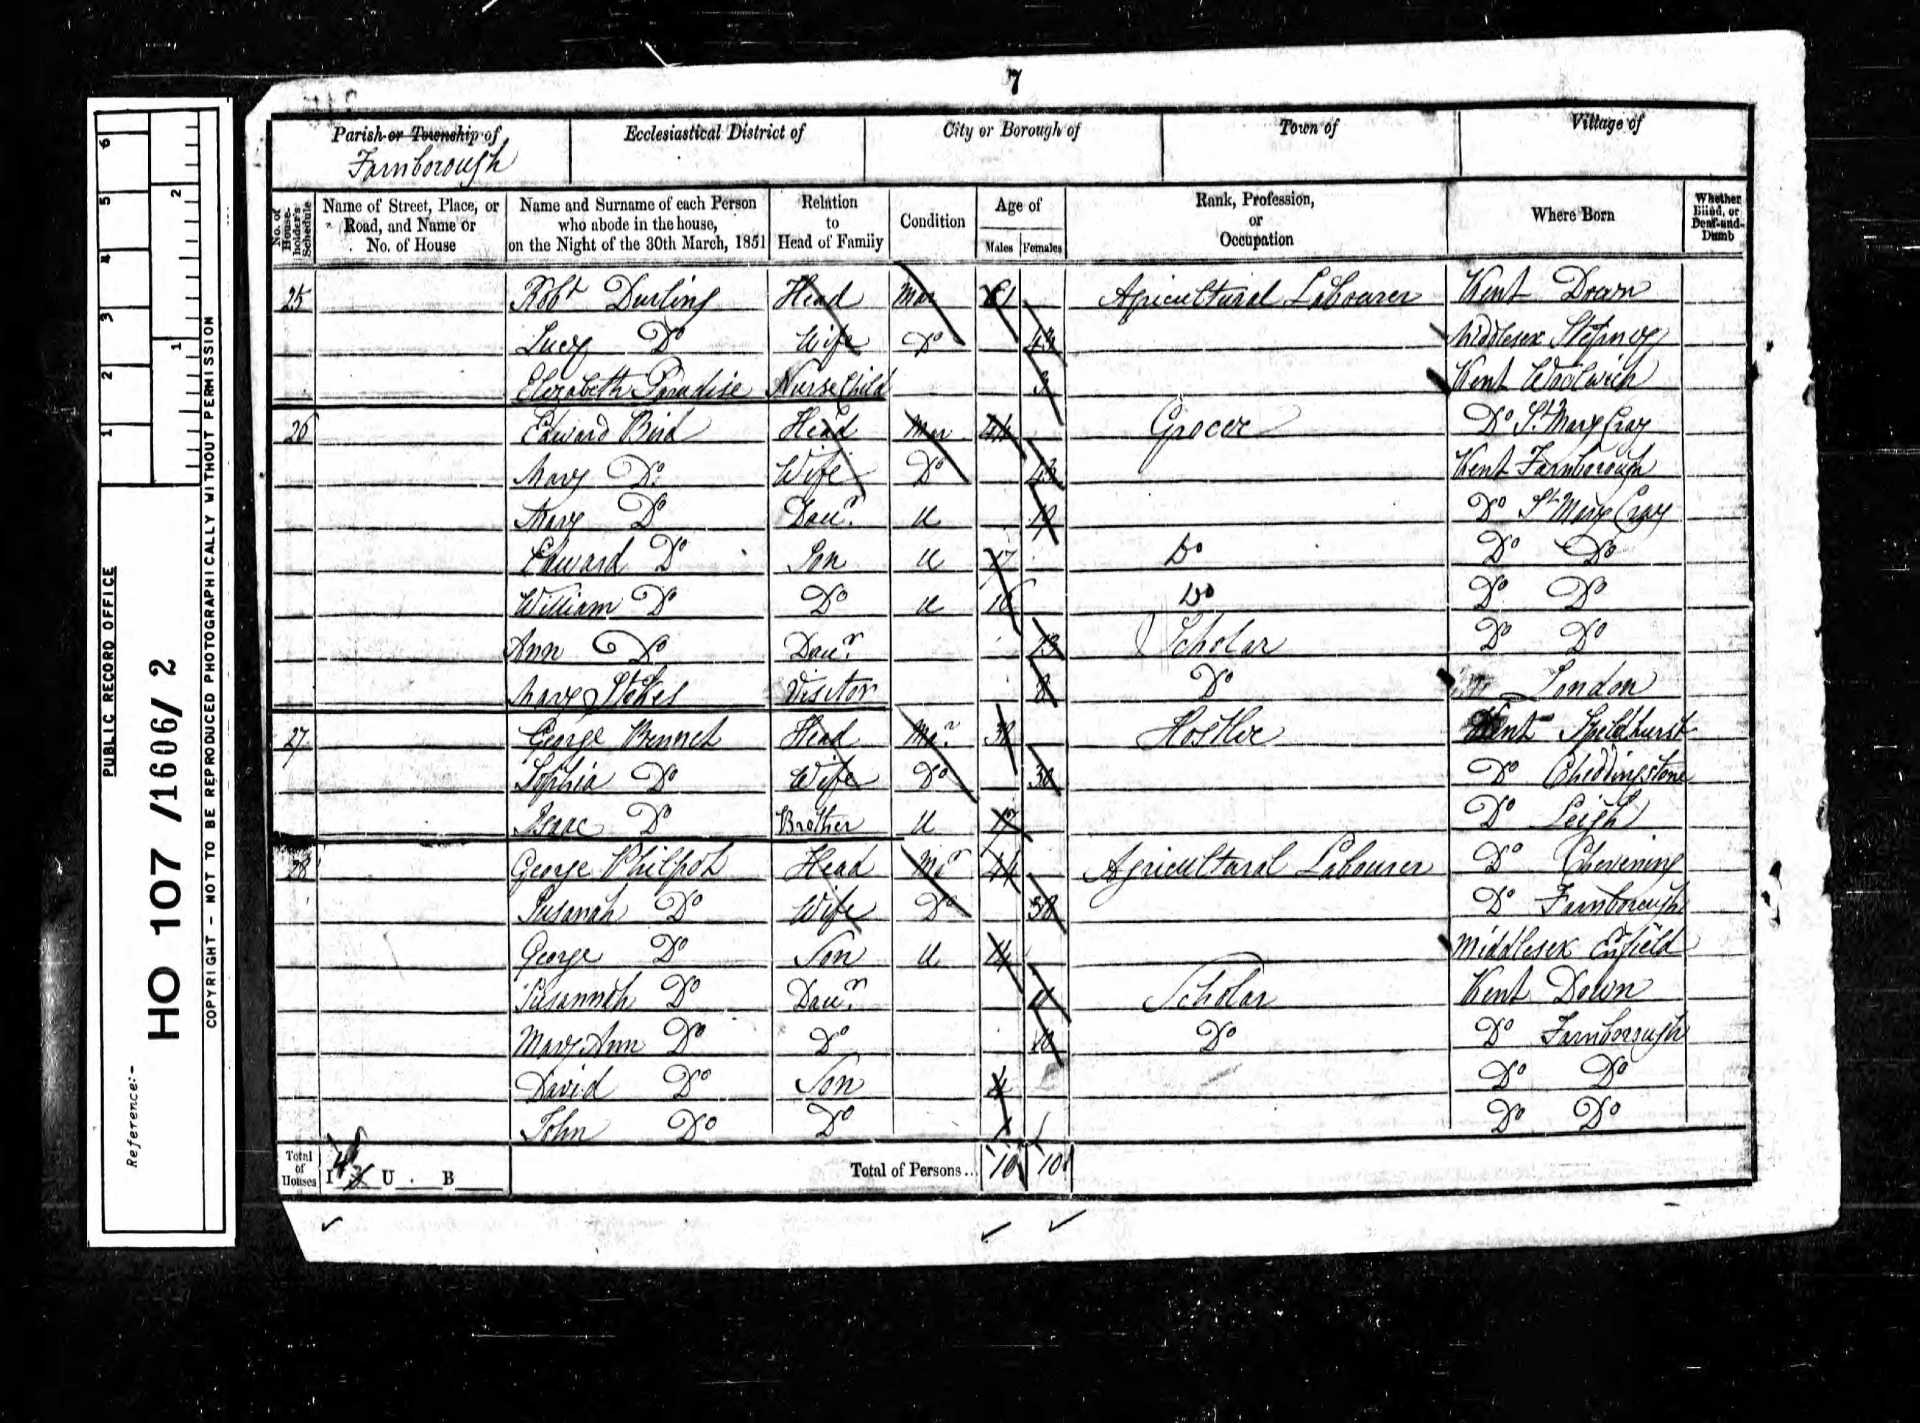 7
Parish or Township of
Farnborough
Ecclesiastical District of
City or Borough of
Town of
Village of
No. of House-holder's Schedule
Name of Street, Place, or Road, and Name or No. of House
Name and Surname of each Person who abode in the house, on the Night of the 30th March, 1851
Relation to Head of Family
Condition
Age of
Males Females
Rank, Profession, or Occupation
Where Born
Whether Blind, or Deaf-and-Dumb
25 Robt Durling Head Mar 61 Agricultural Labourer Kent Down
Lucy Do Wife Do 43 Middlesex Stepney
Elizabeth Paradise Nurse Child 3 Kent Woolwich
26 Edward Bird Head Mar 44 Grocer Do St Mary Cray
Mary Do Wife Do 43 Kent Farnborough
Mary Do Daur U 19 Do St Mary Cray
Edward Do Son U 17 Do Do Do
William Do Do U 16 Do Do Do
Ann Do Daur 13 Scholar Do Do
Mary Stokes Visitor 8 Do London
27 George Bennet Head Mar 38 Hostler Kent Speldhurst
Sophia Do Wife Do 30 Do Chiddingstone
Isaac Do Brother U 17 Do Leigh
28 George Philpot Head Mar 44 Agricultural Labourer Do Chevening
Susanah Do Wife Do 38 Do Farnborough
George Do Son U 14 Middlesex Enfield
Susannah Do Daur 11 Scholar Kent Down
Mary Ann Do Do 10 Do Do Farnborough
David Do Son 4 Do Do
John Do Do 1 Do Do
Total of Houses I 4 U B Total of Persons... 10 10
PUBLIC RECORD OFFICE
Reference:-
HO 107 /1606/ 2
COPYRIGHT - NOT TO BE REPRODUCED PHOTOGRAPHICALLY WITHOUT PERMISSION
1 2 3 4 5 6
1 2